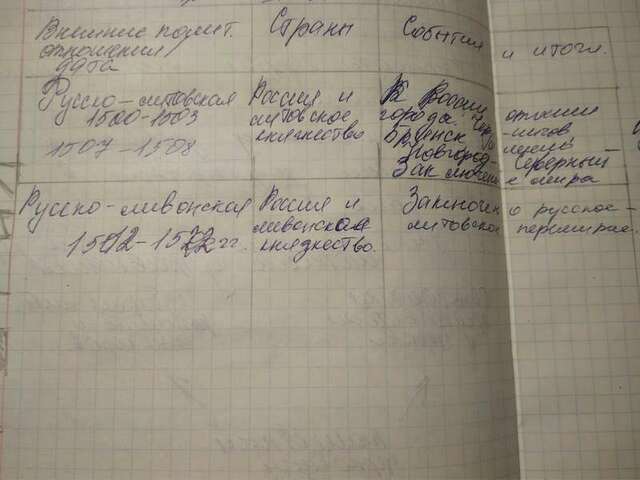 Внешние полит. Страны События и итоги.
отношения
дата
Русско-литовская Россия и К России отошли
1500-1503 литовское города
княжество Брянск
1507-1508 Новгород-Северный
Заключение мира
Русско-ливонская Россия и Заключено русско-
1512-1522 гг. ливонская литовское перемирие.
княжество.